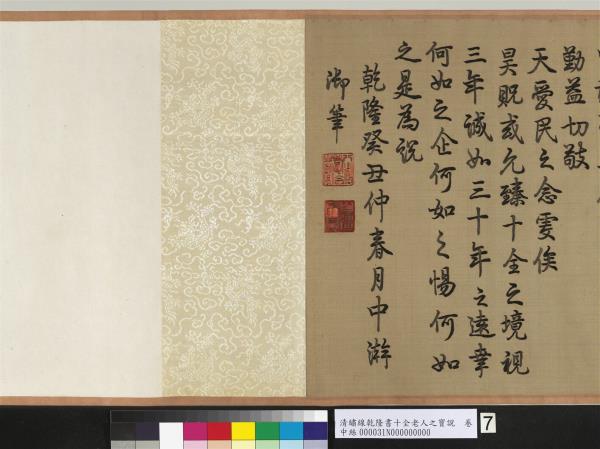 勤益切敬
天愛民之念雯俟
昊貺或允臻十全之境視
三年誠如三十年之遠幸
何如之企何如之惕何如
之是為說
乾隆癸丑仲春月中澣
御筆
清繡線乾隆書十全老人之寶說 卷
中絲000031N000000000
7